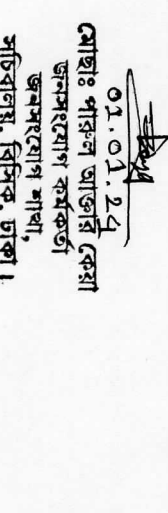 01.01.24
মোছাঃ পারুল আক্তার কেয়া
জনসংযোগ কর্মকর্তা
জনসংযোগ শাখা,
সচিবালয়, বিসিক, ঢাকা।